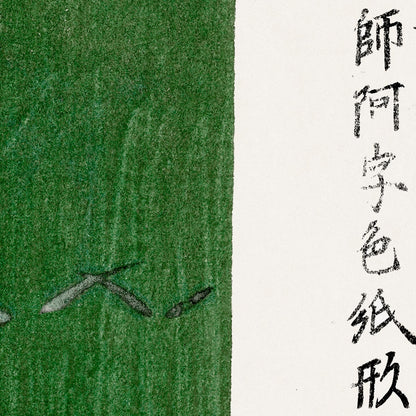 師阿字色紙形